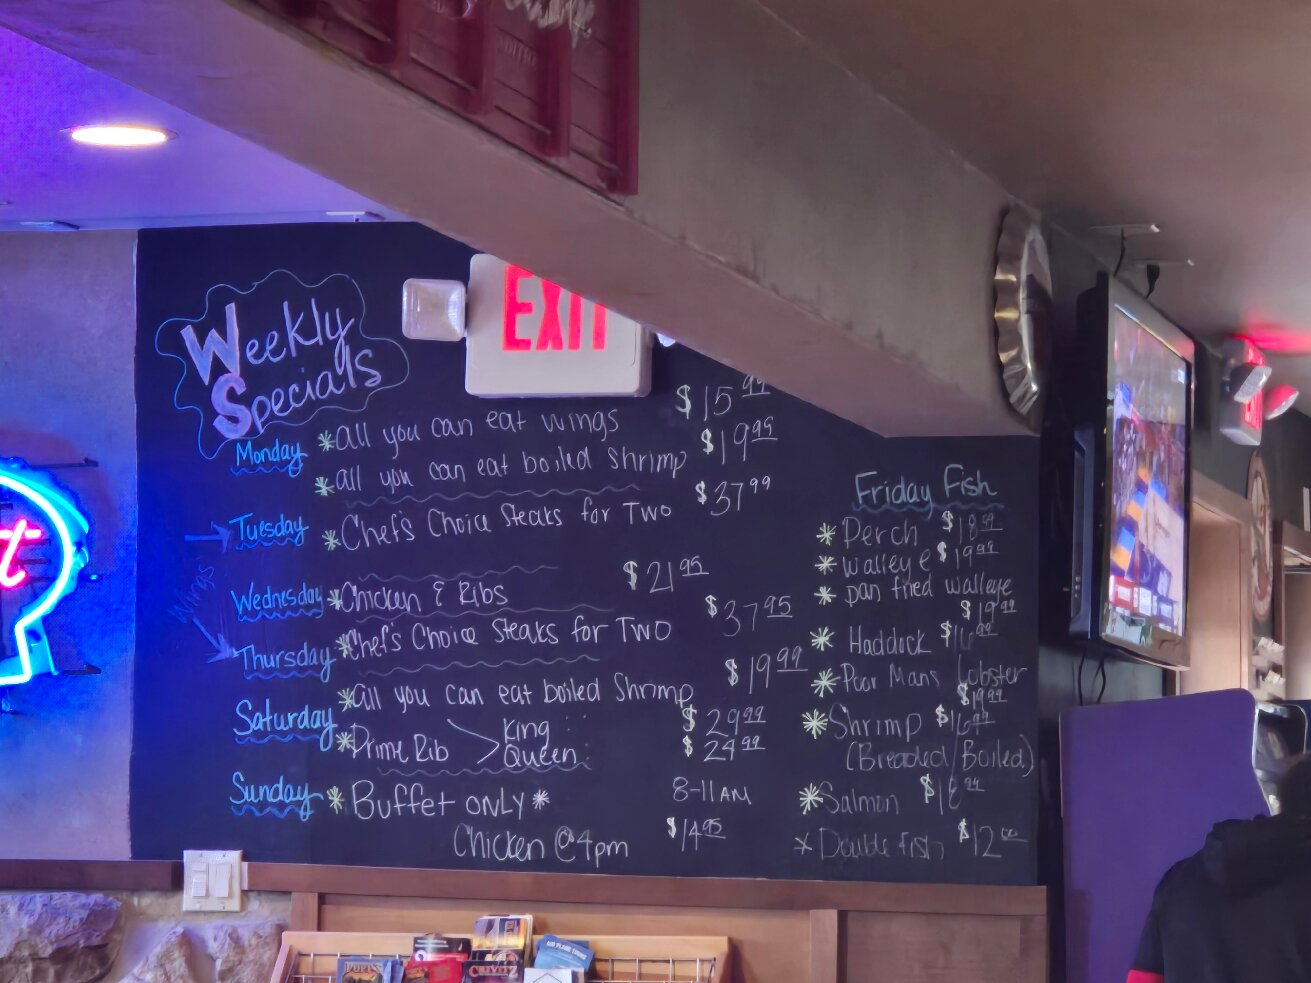 EXIT
Weekly
Specials
Monday
*All you can eat wings $15 99
*all you can eat boiled shrimp $19 95
Tuesday
*Chef's Choice Steaks for Two $37 99
Wings
Wednesday
*Chicken & Ribs $21 95
Thursday
*Chef's Choice Steaks for Two $37 95
*all you can eat boiled Shrimp $19 99
Saturday
*Prime Rib > King $29 99
Queen $24 99
Sunday
*Buffet ONLY* 8-11AM
Chicken @4pm $14 95
Friday Fish
*Perch $18 99
*Walleye $19 99
*pan fried walleye
$19 99
*Haddock
*Poor Mans Lobster
$19 99
*Shrimp $16 99
(Breaded/Boiled)
*Salmon
*Double fish $12 00
CRIVITZ